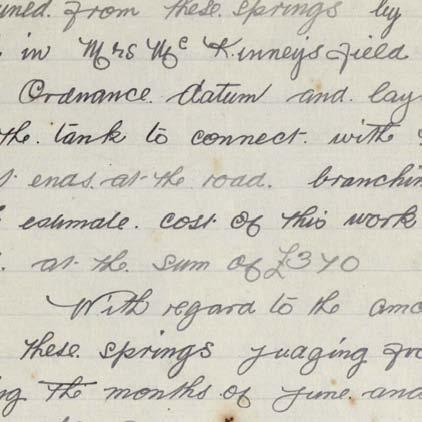 from these springs by
in Mrs Mc Kinneys field
Ordnance. datum and lay
the tank to connect. with
ends. at the road. branchin
estimate. cost of this work
at the sum of £370
With regard to the amo
these springs judging fro
the months of June and